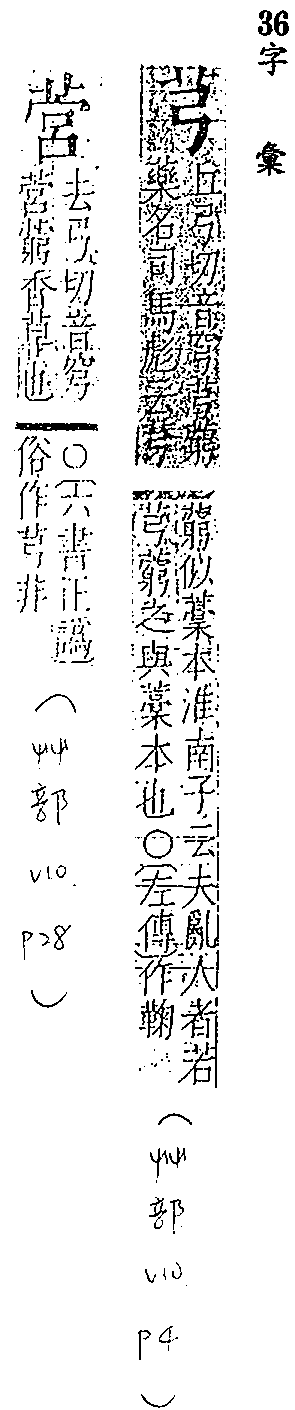 36字彙
芎
丘弓切音穹芎藭
藥名司馬彪云芎
藭似藁本淮南子云夫亂人者若
芎藭之與藁本也○左傳作鞠
(艸部 v10 p4)
营
去弓切音穹
营藭香草也
○六書正譌
俗作芎非
(艸部 v10. p28)